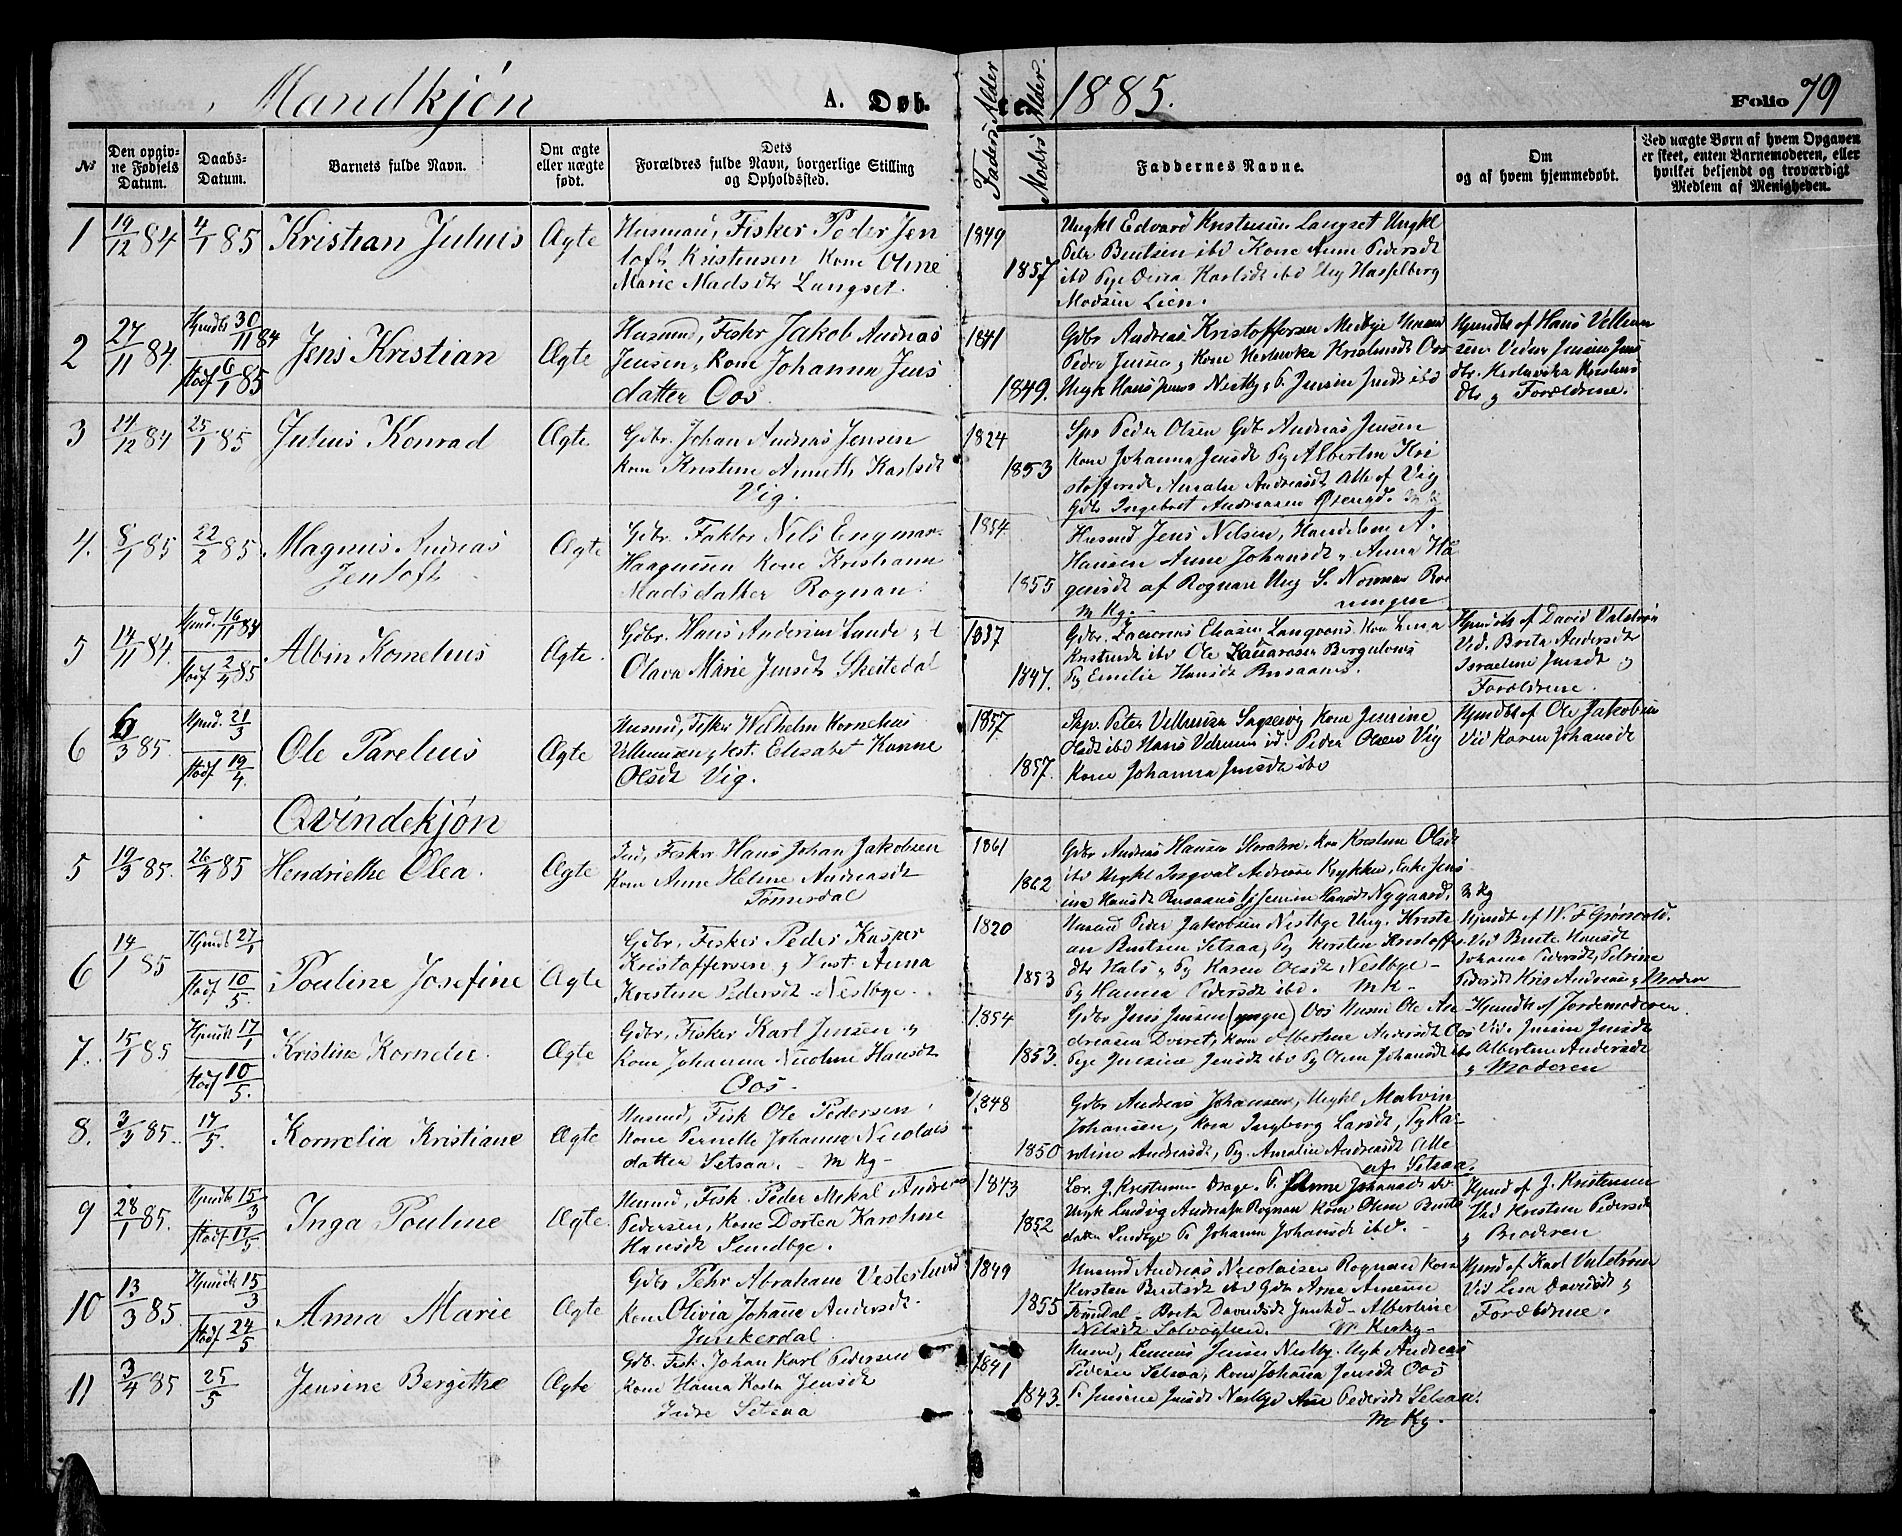 Mandkjøn A. Døbte 1885. Folio 79
No
Den opgivne Fødsels Datum.
Daabs-Datum.
Barnets fulde Navn.
Om ægte eller uægte født.
Dets Forældres fulde Navn, borgerlige Stilling og Opholdssted.
Faders Alder
Moders Alder.
Faddernes Navne.
Om og af hvem hjemmedøbt.
Ved uægte Børn af hvem Opgaven er skeet, enten Barnemoderen, eller hvilket betjendt og troværdigt Medlem af Menigheden.
1 19/12 84 4/1 85 Kristian Julius Ægte
Husmand, Fisker Peder Jen
toft Kristensen Kone Oline
Marie Madsdtr Langset.
1849
1857
Ungkl Edvard Kristensen Langset Ungkl
Petr Bentsen ibd Kone Anne Pedersdt
ibd Pige Karlsdt ibd Ung Hasselberg
Madsen Lien.
2 27/11 84. Hjmdbt 30/11 84 Stadf 6/1 85 Jens Kristian Ægte
Husmd, Fiskr Jakob Andreas
Jensen, Kone Johanna Jens
datter Oos.
1841
1849.
Gdbr Andreas Kristoffersen Medbye
Peder Jensen, Kone Kristensdt Oos
Ungk Hans Jens Nestby, P. Jensine Jensdt ibd
Hjmdbt af Hans Vellum
sen Vidner Jensine Jens
dtr.
dtr og Forældrene.
3 14/12 84 25/1 85 Julius Konrad Ægte
Gdbr. Johan Andreas Jensen
Kone Kristine Anneth Karlsdt
Vig.
1824
1853
Peder Olsen Gdb Andreas Jensen
Kone Johanna Jensdt Pig Albertin Kri
stoffersdt, Amalie Andreasdt Alle af Vig
Gdbr Ingebret Andreassen m K
4. 8/1 85 22/2 85. Magnus Andreas
Jentoft
Ægte
Gdbr. Faktor Nils Engmar
Haagensen Kone Kristiane
Madsdatter Rognan.
1854
1855
Husmd Jens Nilsen, Handelsm A.
Hansen Anne Johansdt, Anna Ha
gensdt af Rognan Ung S. Normas
m Kg.
5 14/11 84. Hjmd. 16/11 84 Stadf 2/4 85 Albin Kornelius Ægte.
Gdbr. Hans Andersen Lande
Olava Marie Jensdt Skeitdal
1837
1847.
Gdbr. Zacarias Eliasen Kone Lina
Kristensdt ibd Ole Zakarasen Bergulvnes
Pg Emilie Hansdt Rusaanes.
Hjmdbt af David Valstrøm
Vid. Berta Andersdt
Israeline Jensdt og
Forældrene.
6 6/3 85. Hjmd. 21/3 Stadf 19/4. Ole Parelius Ægte
Husmd, Fisker Wilhelm Kornelius
Vellumsen, Elisabet Hanne
Olsdt Vig.
1857
1857.
Peter Vellumsen Kone Jensine
Olsdt ibd Hans Vellumsen ibd. Peder Olsen Vig
Kone Johanna Jensdt ibd
Hjmdbt af Ole Jakobsen
Vid Karen Johansdt
Qvindekjøn
5 19/3 85. 26/4 85 Hendriethe Olea. Ægte
Ind, Fisker Hans Johan Jakobsen
Kone Anne Helene Andreasdt
Tømerdal
1861
1862
Gdbr Andreas Hansen Kone Kristine Olsdt
ibd Ungkl Ingval Andreas Krykker, Enke Jens
ine Hansdt Rusaanes Hansdt Nygaard,
M Kg
6 14/1 85 Hjmdbt 27/1 Stadf 10/5 Pouline Josefine Ægte
Gdbr, Fisker Peder Kasper
Kristoffersen og Hust. Anna
Kristine Pedersdt Nestbye.
1820
1853
Husmd Peder Jakobsen Nestbye Ung. Kristi
an Bentsen Setsaa, Pg Kirsten Kristoff
dtr Hals, Pg Karen Olsdt Nestbye
Pg Hanna Pedersdt ibd. m K
Hjmdbt af W. F. Grønvold.
Ved Berte Hansdt
Johanna Pedersdt, Petrine
Pedersdt Kris Andreas og Moder
7. 15/1 85 Hjmdbt 17/1 Stadf 10/5. Kristine Kornelie. Ægte
Gdbr, Fisker Karl Jensen og
Kone Johanna Nicoline Hansdt
Oos.
1854
1853.
Gdbr Jens Jensen (yngre) Oos Husm Ole An
dreasen Dverset, kone Albertine Andersdt Oos
Pige Jensine Jensdt ibd Pg Oline Johansdt ibd
Hjmdbt af Jordemoderen.
Vid. Jensine Jensdt
Albertine Andersdt
og Moderen
8. 3/3 85. 17/5. Kornelia Kristiane Ægte
Husmd, Fisk Ole Pedersen
Kone Pernelle Johanna Nicolais
datter Setsaa. - m Kg -
1848
1850
Gdbr Andreas Johansen, Ungkl Malvin
Johansen, Kona Ingeborg Larsdt, Pg Ka
roline Andreasdt, Pg. Amalie Andreasdt Alle
af Setsaa.
9 28/1 85. Hjmdbt 15/3 Stadf 17/5 Inga Pouline Ægte.
Husmd, Fisk. Peder Mikal Andreas
Pedersen, Kone Dortea Karoline
Hansdt Sundbye.
1843
1852
Lær. J. Kristensen Drage. P. Johansdt ibd
Ungk Ludvig Andreasen Rognan Kone Oline Bents
datter Sundbye P. Johanna Johansdt ibd.
Hjmd af J. Kristensen
Ved Kirsten Pedersdt
og Broderen
10 13/3 85. Hjmdbt 15/3 Stadf 24/5 Anna Marie Ægte
Gdbr Pehr Abraham Vesterlund
Kone Olivia Johanne Andersdt.
Junkerdal
1849
1855
Husmd Andreas Nicolaisen Rognan Kone
Kirsten Bentsdt ibd Gdbr Arne Arnesen
Berta Davidsdt Junkd. Albertine
Nilsdt Solvaglien.
Hjmd af Karl Valstrøm
Vid Lisa Davidsdt og
Forældrene.
11 3/4 85 25/5 Jensine Bergithe Ægte
Gdb. Fisk. Johan Karl Pedersen
Kone Hanna Jensdt
Indre Setsaa
1841
1843.
Husmd, Jensen Nestby. Ugk Andreas
Pedersen Setsaa, Kone Johanna Jensdt Oos
P. Jensine Jensdt Nestbye Ane Pedersdt Setsaa.
M Kg.